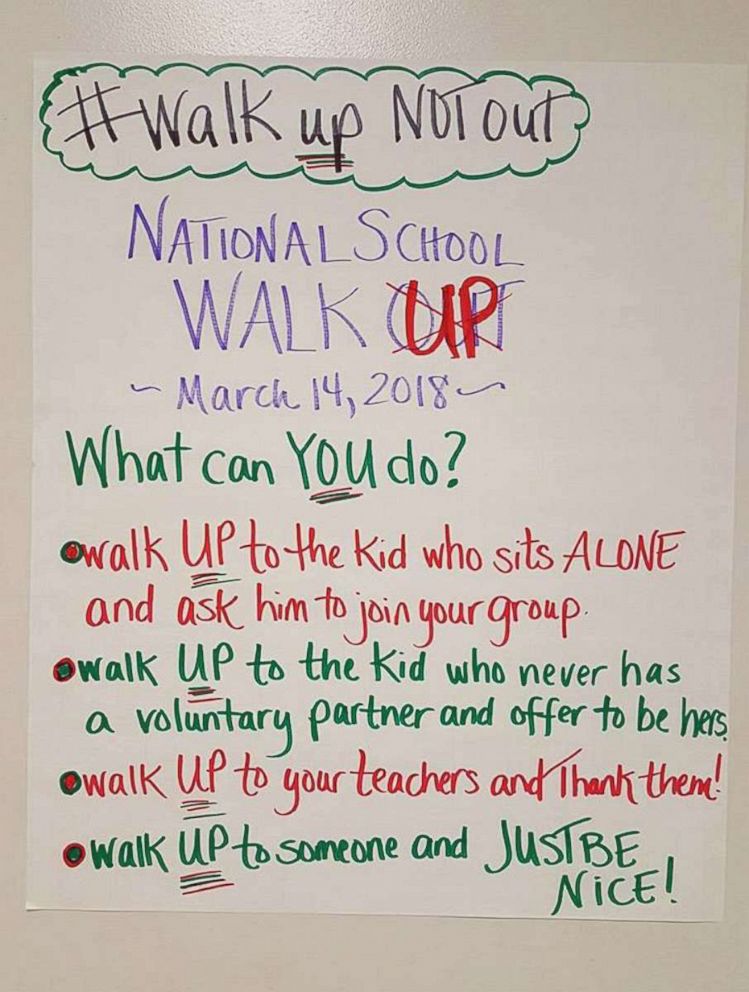 #Walk up NOT out
NATIONAL SCHOOL
WALK OUT UP
~ March 14, 2018 ~
What can YOU do?
• walk UP to the kid who sits ALONE
and ask him to join your group.
• walk UP to the kid who never has
a voluntary partner and offer to be hers.
• walk UP to your teachers and Thank them!
• walk UP to someone and JUST BE
NiCE!